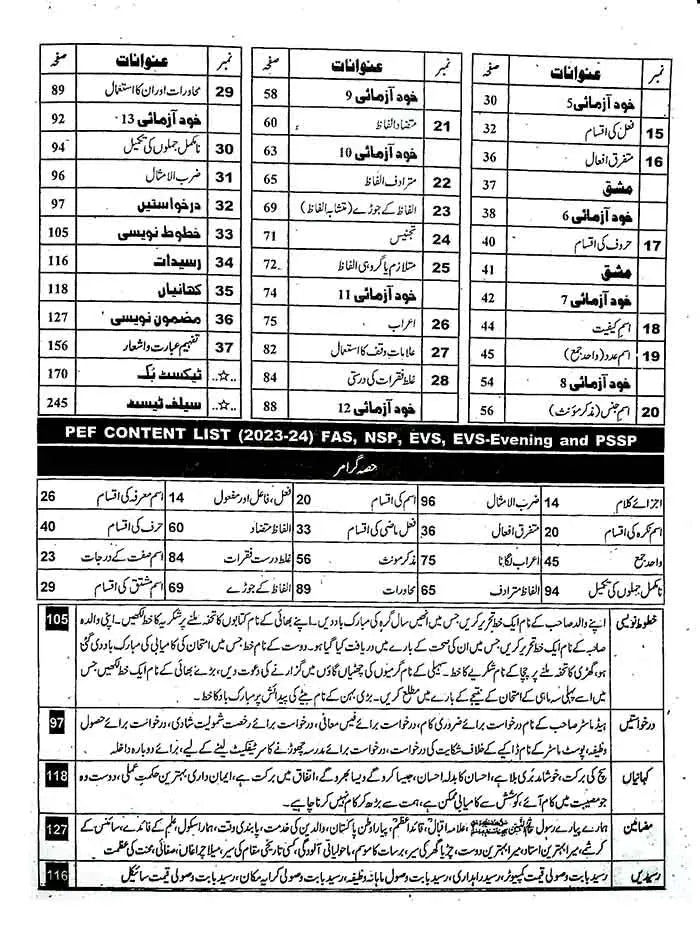 نمبر عنوانات صفحہ
خود آزمائی 5 30
15 فعل کی اقسام 32
16 متفرق افعال 36
مشق 37
خود آزمائی 6 38
17 حروف کی اقسام 40
مشق 41
خود آزمائی 7 42
18 اسم کیفیت 44
19 اسم عدد (واحد جمع) 45
خود آزمائی 8 54
20 اسم جنس (مذکر مؤنث) 56
نمبر عنوانات صفحہ
خود آزمائی 9 58
21 متضاد الفاظ 60
خود آزمائی 10 63
22 مترادف الفاظ 65
23 الفاظ کے جوڑے (متشابہ الفاظ) 69
24 تجنیس 71
25 متلازم یا گروہی الفاظ 72
خود آزمائی 11 74
26 اعراب 75
27 علامات وقف کا استعمال 82
28 غلط فقرات کی درستی 84
خود آزمائی 12 88
نمبر عنوانات صفحہ
29 محاورات اور ان کا استعمال 89
خود آزمائی 13 92
30 نامکمل جملوں کی تکمیل 94
31 ضرب الامثال 96
32 درخواستیں 97
33 خطوط نویسی 105
34 رسیدات 116
35 کہانیاں 118
36 مضمون نویسی 127
37 تفہیم عبارت و اشعار 156
..☆.. ٹیکسٹ بک 170
..☆.. سیلف ٹیسٹ 245
PEF CONTENT LIST (2023-24) FAS, NSP, EVS, EVS-Evening and PSSP
حصہ گرامر
اجزائے کلام 14 ضرب الامثال 96 اسم کی اقسام 20 فعل، فاعل اور مفعول 14 اسم معرفہ کی اقسام 26
اسم نکرہ کی اقسام 20 متفرق افعال 36 فعل ماضی کی اقسام 33 الفاظ متضاد 60 حرف کی اقسام 40
واحد جمع 45 اعراب لگانا 75 مذکر مونث 56 غلط درست فقرات 84 اسم صفت کے درجات 23
نامکمل جملوں کی تکمیل 94 الفاظ مترادف 65 محاورات 89 الفاظ کے جوڑے 69 اسم مشتق کی اقسام 29
خطوط نویسی اپنے والد صاحب کے نام ایک خط تحریر کریں جس میں انھیں سال گرہ کی مبارک باد دیں۔ اپنے بھائی کے نام کتابوں کا تحفہ ملنے پر شکریہ کا خط لکھیں۔ اپنی والدہ 105
صاحبہ کے نام ایک خط تحریر کریں جس میں ان کی صحت کے بارے میں دریافت کیا گیا ہو۔ دوست کے نام خط جس میں امتحان کی کامیابی کی مبارک باد دی گئی
ہو، گھڑی کا تحفہ ملنے پر چچا کے نام شکریے کا خط۔ سہیلی کے نام گرمیوں کی چھٹیاں گاؤں میں گزارنے کی دعوت دیں، بڑے بھائی کے نام ایک خط لکھیں جس
میں اسے پہلی سہ ماہی کے امتحان کے نتیجے کے بارے میں مطلع کریں۔ بڑی بہن کے نام بیٹے کی پیدائش پر مبارک باد کا خط۔
درخواستیں ہیڈ ماسٹر صاحب کے نام درخواست برائے ضروری کام، درخواست برائے فیس معافی، درخواست برائے رخصت شمولیت شادی، درخواست برائے حصول 97
وظیفہ، پوسٹ ماسٹر کے نام ڈاکیے کے خلاف شکایت کی درخواست، درخواست برائے مدرسہ چھوڑنے کا سرٹیفکیٹ لینے کے لیے، برائے دوبارہ داخلہ
کہانیاں سچ کی برکت، خوشامد بُری بلا ہے، احسان کا بدلہ احسان، جیسا کرو گے ویسا بھرو گے، اتفاق میں برکت ہے، ایمان داری بہترین حکمت عملی، دوست وہ 118
جو مصیبت میں کام آئے، کوشش سے کامیابی ممکن ہے، ہمت سے بڑھ کر کام نہیں کرنا چاہیے۔
مضامین ہمارے پیارے رسول، علامہ اقبالؒ، قائد اعظمؒ، پیارا وطن پاکستان، والدین کی خدمت، پابندی وقت، ہمارا سکول، علم کے فائدے، سائنس کے 127
کرشمے، میرا بہترین استاد، میرا بہترین دوست، چڑیا گھر کی سیر، برسات کا موسم، ماحولیاتی آلودگی، کسی تاریخی مقام کی سیر، میلا چراغاں، صفائی، محنت کی عظمت
رسیدیں رسید بابت وصولی قیمت کمپیوٹر، رسید راہداری، رسید بابت وصولی ماہانہ وظیفہ، رسید بابت وصولی کرایہ مکان، رسید بابت وصولی قیمت سائیکل 116